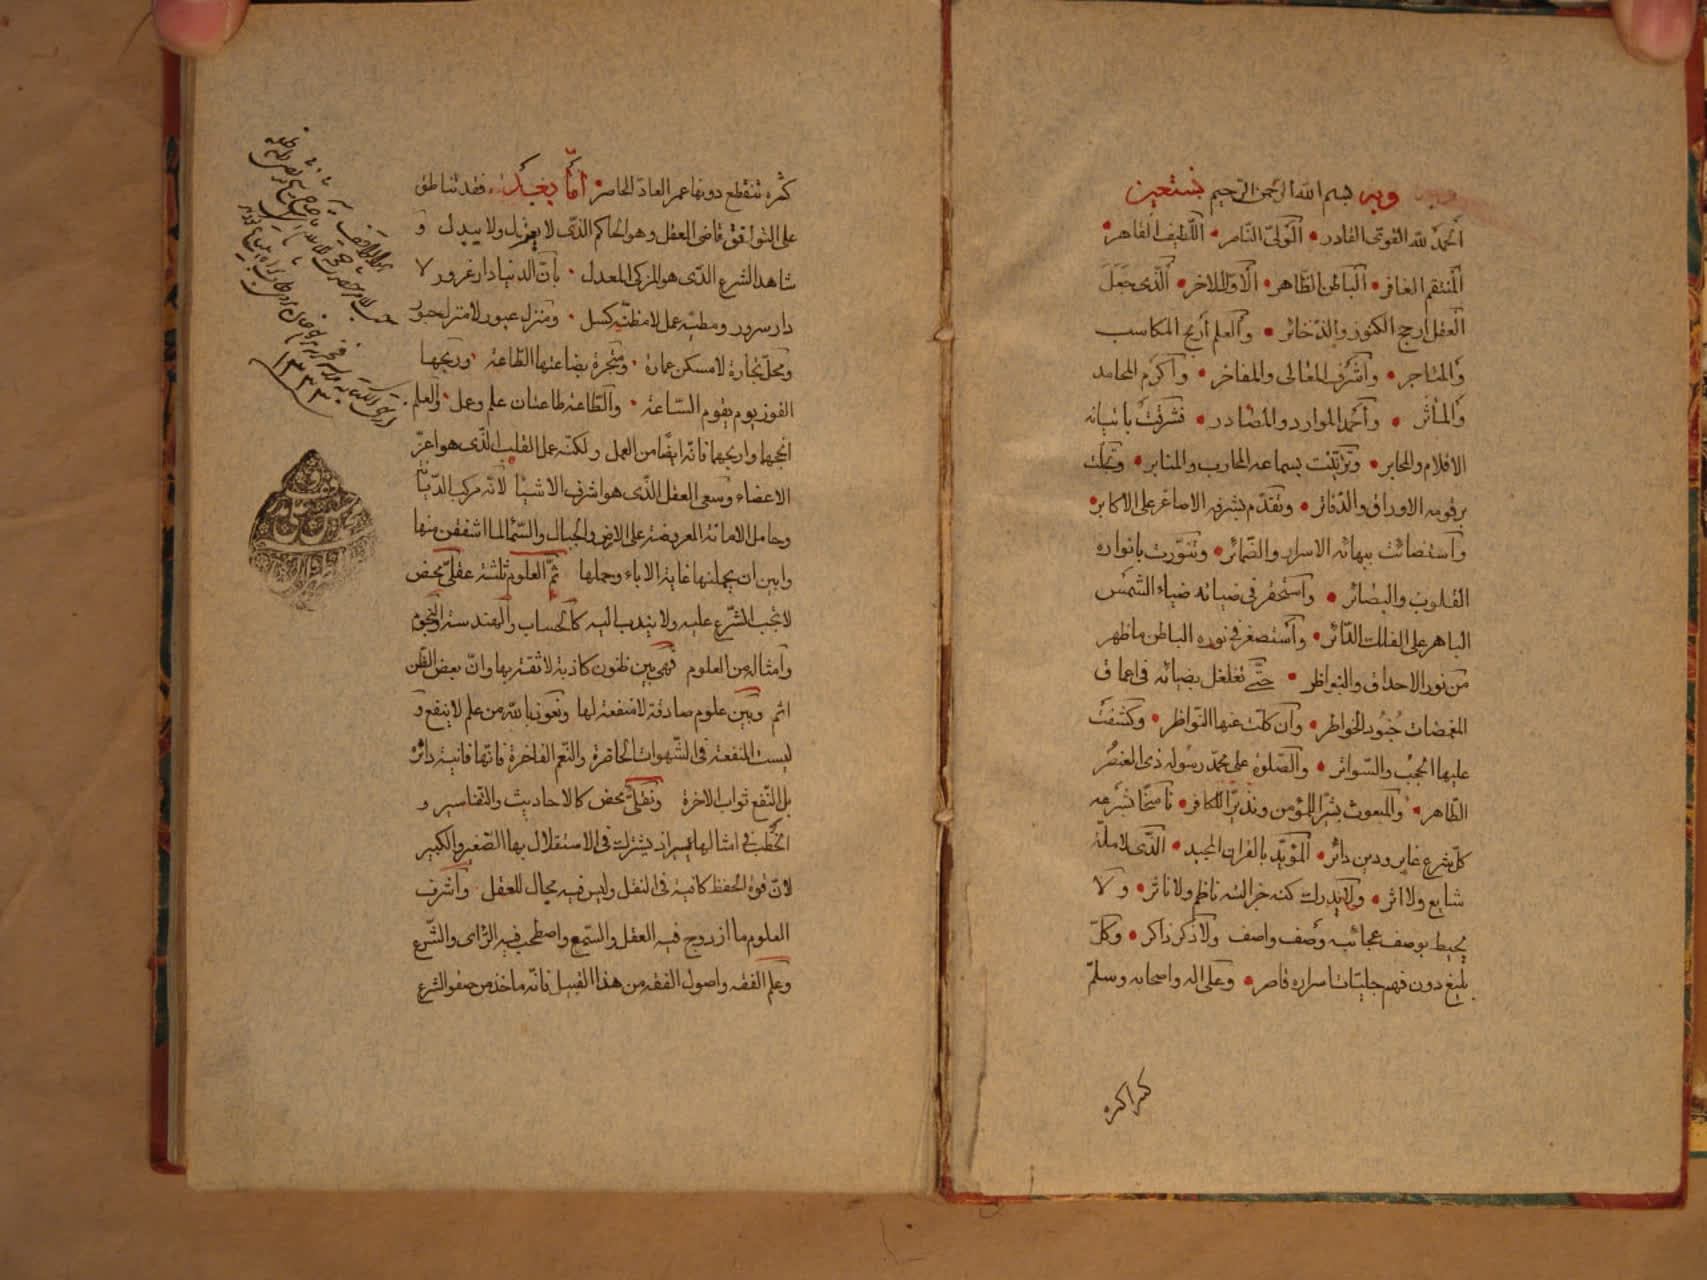 وبه بسم الله الرحمن الرحيم نستعين
الحمد لله القوى القادر • الولى الناصر • اللطيف القاهر •
المنتقم الغافر • الباطن الظاهر • الاول الاخر • الذى جعل
العقل ارجح الكنوز والذخائر • والعلم اربح المكاسب
والمتاجر • واشرف المعالى والمفاخر • واكرم المحامد
والمآثر • واحمد الموارد والمصادر • فشرفت باثباته
الاقلام والمحابر • وتزينت بسماعه المحاريب والمنابر • وتحلت
برقومه الاوراق والدفاتر • وتقدم بشرفه الاصاغر على الاكابر •
واستضائت ببهائه الاسرار والضمائر • وتنورت بانواره
القلوب والبصائر • واستحقر فى ضيائه ضياء الشمس
الباهر على الفلك الدائر • واستصغر فى نوره الباطن ما ظهر
من نور الاحداق والنواظر • حتى تغلغل بضيائه فى اعماق
المغمضات جنود الخواطر • وان كلت عنها النواظر • وكشفت
عليها الحجب والسواتر • والصلوة على محمد رسوله ذى العنصر
الطاهر • والمبعوث بشيرا للمؤمن ونذيرا للكافر • ناسخا بشرعه
كل شرع غابر ودين داثر • المؤيد بالقران المجيد • الذى لا يمله
سامع ولا اثر • ولا يدرك كنه جزالته ناظم ولا ناثر • ولا
يحيط بوصف عجائبه وصف واصف ولا ذكر ذاكر • وكل
بليغ دون فهم جليات اسراره قاصر • وعلى اله واصحابه وسلم
كثيرا كثره
كثره تنقطع دونها عمر العاد الحاصر • اما بعد فقد تناطق
على التوافق قاضى العقل وهو الحاكم الذى لا يعزل ولا يبدل و
شاهد الشرع الذى هو المزكى المعدل • بان الدنيا دار غرور لا
دار سرور ومطية عمل لا مطية كسل • ومنزل عبور لا منزل حبور
ومحل تجارة لا مسكن عمارة • ومتجرة بضاعتها الطاعة • وربحها
الفوز يوم يقوم الساعة • والطاعة طاعتان علم وعمل • والعلم
انجحها واربحها فانه ايضا من العمل ولكنه عمل القلب الذى هو اعز
الاعضاء وسعى العقل الذى هو اشرف الاشياء لانه مركب الديانة
وحامل الامانة المعروضة على الارض والجبال والسماء لما اشفقن منها
وابين ان يحملنها غاية الاباء وحملها ثم العلوم ثلثة عقلى محض
لا يحث الشرع عليه ولا يندب اليه كالحساب والهندسة والنجوم
وامثاله من العلوم فهى بين ظنون كاذبة لا ثقة بها وان بعض الظن
اثم وبين علوم صادقة لا منفعة لها ونعوذ بالله من علم لا ينفع و
ليست المنفعة فى الشهوات الحاضرة والنعم الفاخرة فانها فانية داثرة
بل النفع ثواب الاخرة ونقلى محض كالاحاديث والتفاسير و
الخطب فى امثالها يسير اذ يشترك فى الاستقلال بها الصغير والكبير
لان قوة الحفظ كافية فى النقل وليس فيه مجال للعقل • واشرف
العلوم ما ازدوج فيه العقل والسمع واصطحب فيه الراى والشرع
وعلم الفقه واصول الفقه من هذا القبيل فانه ماخذ من صفو الشرع
١٣٣٣